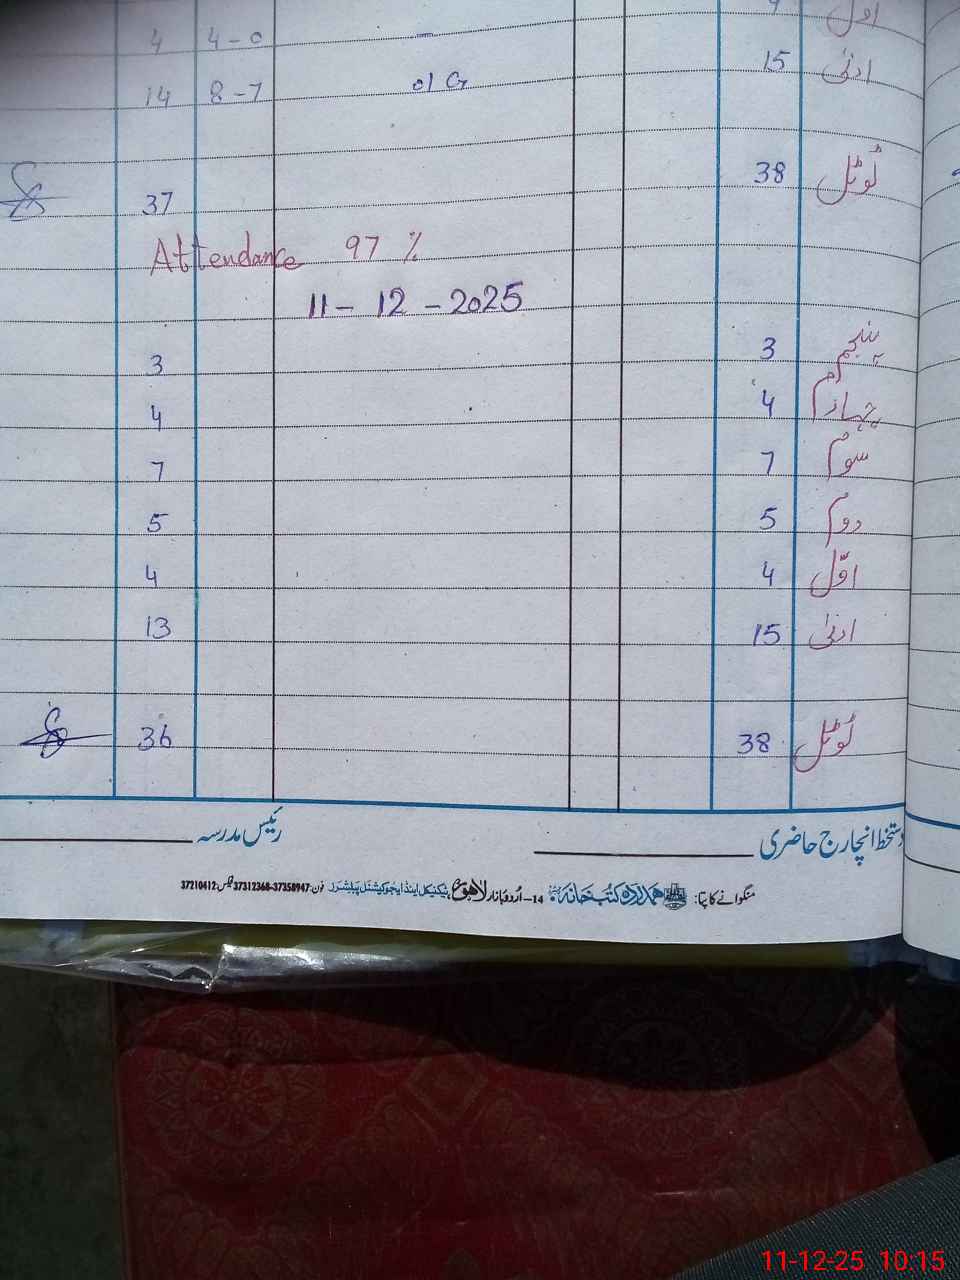 4 4-0 — 4 اول
14 8-7 01 G 15 ادنیٰ
37 38 ٹوٹل
Attendance 97 %
11 - 12 - 2025
3 3 پنجم
4 4 چہارم
7 7 سوم
5 5 دوم
4 4 اوّل
13 15 ادنیٰ
36 38 ٹوٹل
دستخط انچارج حاضری رئیس مدرسہ
منگوانے کا پتا: ہمدرد کتب خانہ 14-اُردو بازار لاہور ٹیکنیکل اینڈ ایجوکیشنل پبلشرز فون: 37358947-37312368 فیکس: 37210412
11-12-25 10:15